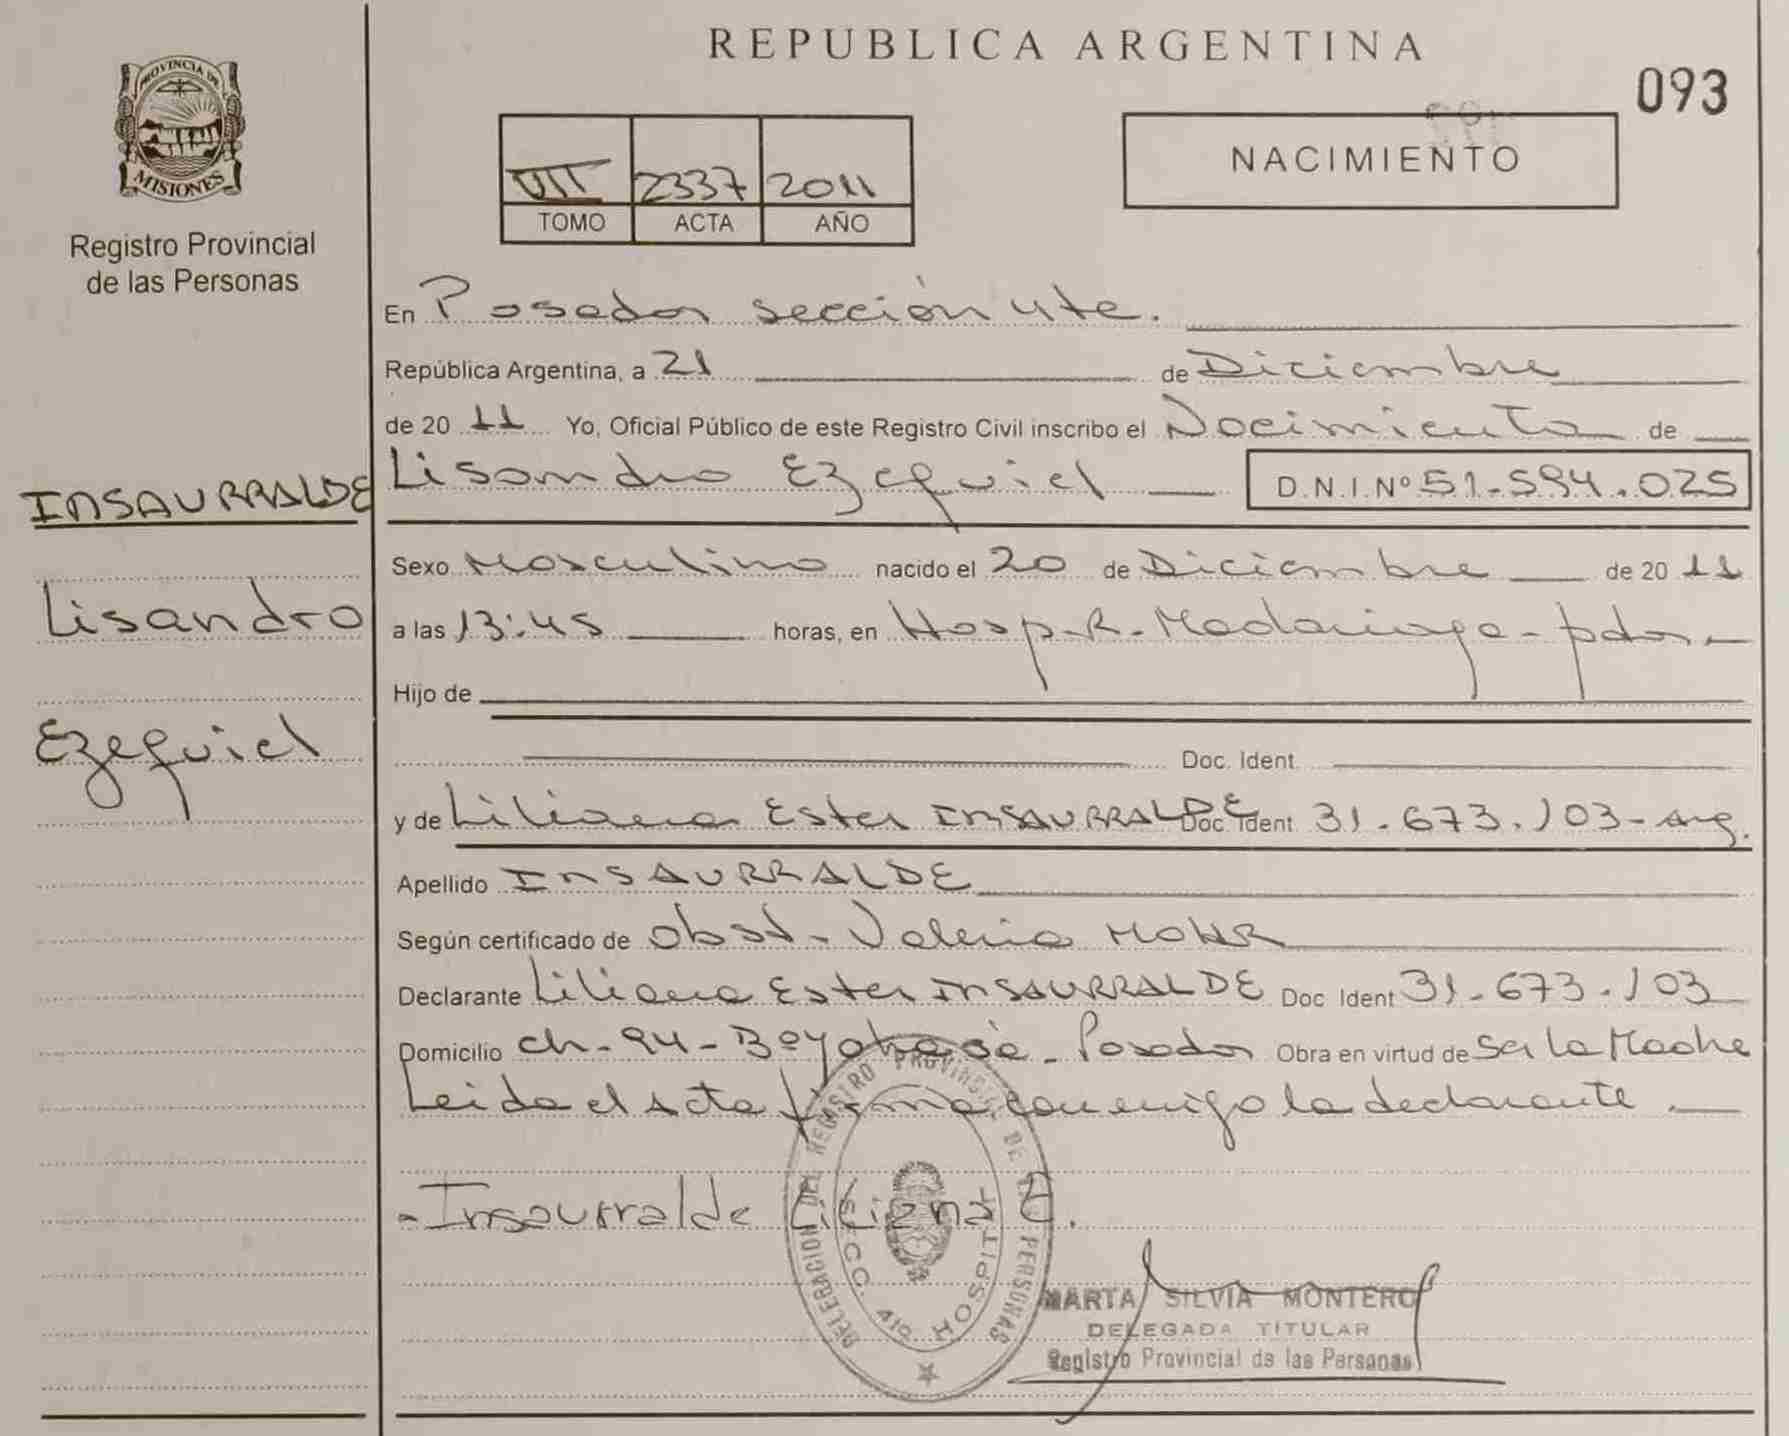 REPUBLICA ARGENTINA
093
PROVINCIA DE
MISIONES
Registro Provincial
de las Personas
VIII 2337 2011
TOMO ACTA AÑO
NACIMIENTO
En Posadas sección 4ta.
República Argentina, a 21 de Diciembre
de 2011 Yo, Oficial Público de este Registro Civil inscribo el Nacimiento de
Lisandro Ezequiel D.N.I. Nº 51.594.025
INSAURRALDE
Lisandro
Ezequiel
Sexo Masculino nacido el 20 de Diciembre de 2011
a las 13:45 horas, en Hosp. R. Madariaga - pdas
Hijo de
Doc. Ident.
y de Liliana Ester INSAURRALDE Doc. Ident 31.673.103 - arg.
Apellido INSAURRALDE
Según certificado de Obst. Valeria MOHR
Declarante Liliana Ester INSAURRALDE Doc Ident 31.673.103
Domicilio ch. 94 - Bº - Posadas Obra en virtud de Ser la Madre
Leida el Acta firma conmigo la declarante
- Insaurralde Liliana E.
DELEGACION DEL REGISTRO PROVINCIAL DE LAS PERSONAS
SECC. 4ta. HOSPITAL
MARTA SILVIA MONTERO
DELEGADA TITULAR
Registro Provincial de las Personas